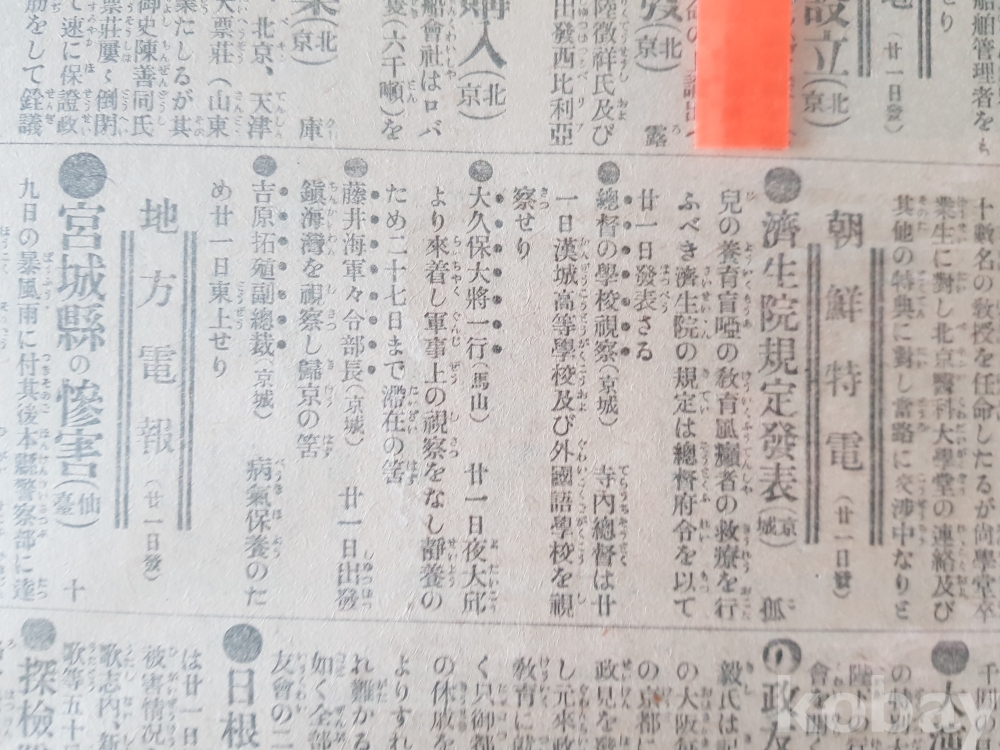 船舶管理者をも
せり
地
(廿一日發)
設立(北京)
發(北京) 露
陸徵祥氏及び
出發西比利亞
購入(北京)
船會社はロバ
(六千噸)を
業(北京) 庫
北京、天津
大票莊(山東
業たしるが其
御史陳善同氏
票莊屢く倒閉
て速に保證政
筋をして銓議
十數名の敎授を任命したるが尙學堂卒
業生に對し北京醫科大學堂の連絡及び
其他の特典に對し當路に交涉中なりと
朝鮮特電(廿一日發)
●濟生院規定發表(京城) 孤
兒の養育盲啞の敎育瘋癲者の救療を行
ふべき濟生院の規定は總督府令を以て
廿一日發表さる
●總督の學校視察(京城) 寺內總督は廿
一日漢城高等學校及び外國語學校を視
察せり
●大久保大將一行(馬山) 廿一日夜大邱
より來着し軍事上の視察をなし靜養の
ため二十七日まで滯在の筈
●藤井海軍々令部長(京城) 廿一日出發
鎭海灣を視察し歸京の筈
●吉原拓殖副總裁(京城) 病氣保養のた
め廿一日東上せり
地方電報(廿一日發)
●宮城縣の慘害(仙臺) 十
九日の暴風雨に付其後本縣警察部に達
千四の
●大浦
の政友
毅氏は
の大阪
の京都に
政見を
し元來政
敎育に
く只御都
の休戚を
よりすれ
れ難かる
如く全部
友會の二
●日根
は廿一日
被害情況
歌志內、新
歌等五十
●探檢
kobay